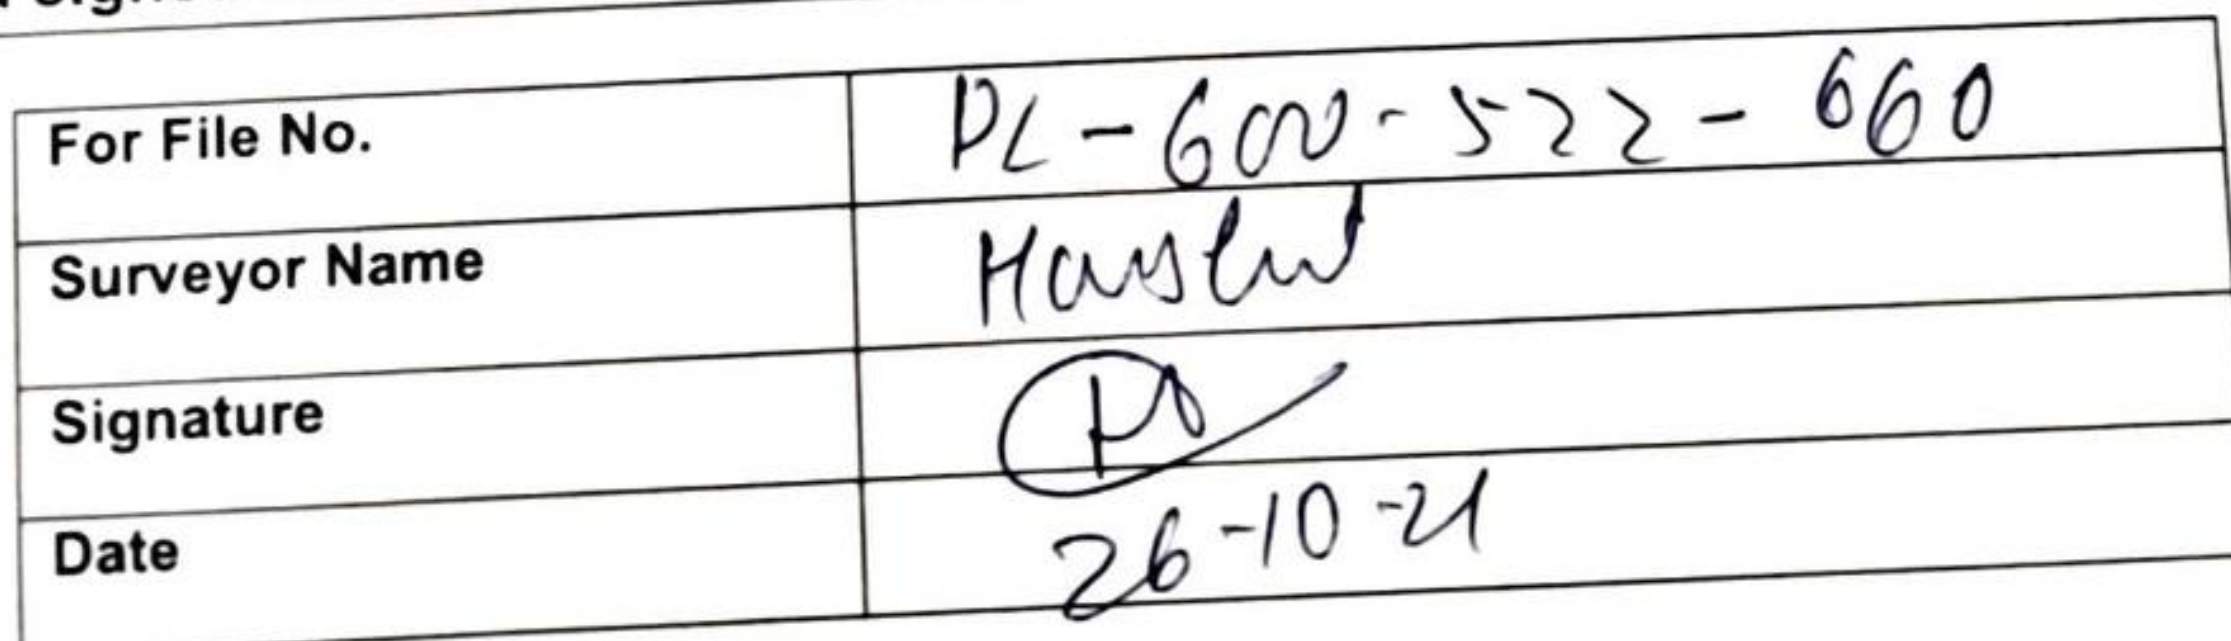 For File No. PL-600-522-660
Surveyor Name
Signature
Date 26-10-21